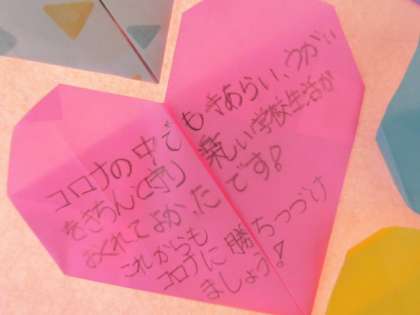 コロナの中でもきあらい、うがい
をきちんと守り楽しい学校生活が
おくれてよかったです!
これからも
コロナに勝ちつづけ
ましょう!